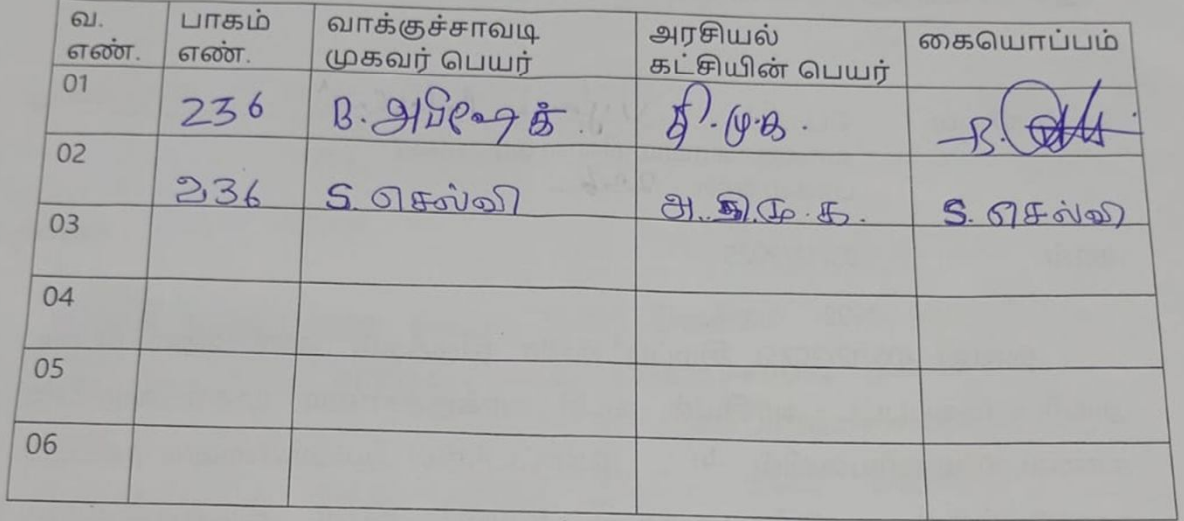 வ. எண். பாகம் எண். வாக்குச்சாவடி முகவர் பெயர் அரசியல் கட்சியின் பெயர் கையொப்பம்
01 236 B. அபிஷேக் தி.மு.க. B.
02 236 S. செல்வி அ.தி.மு.க. S. செல்வி
03
04
05
06